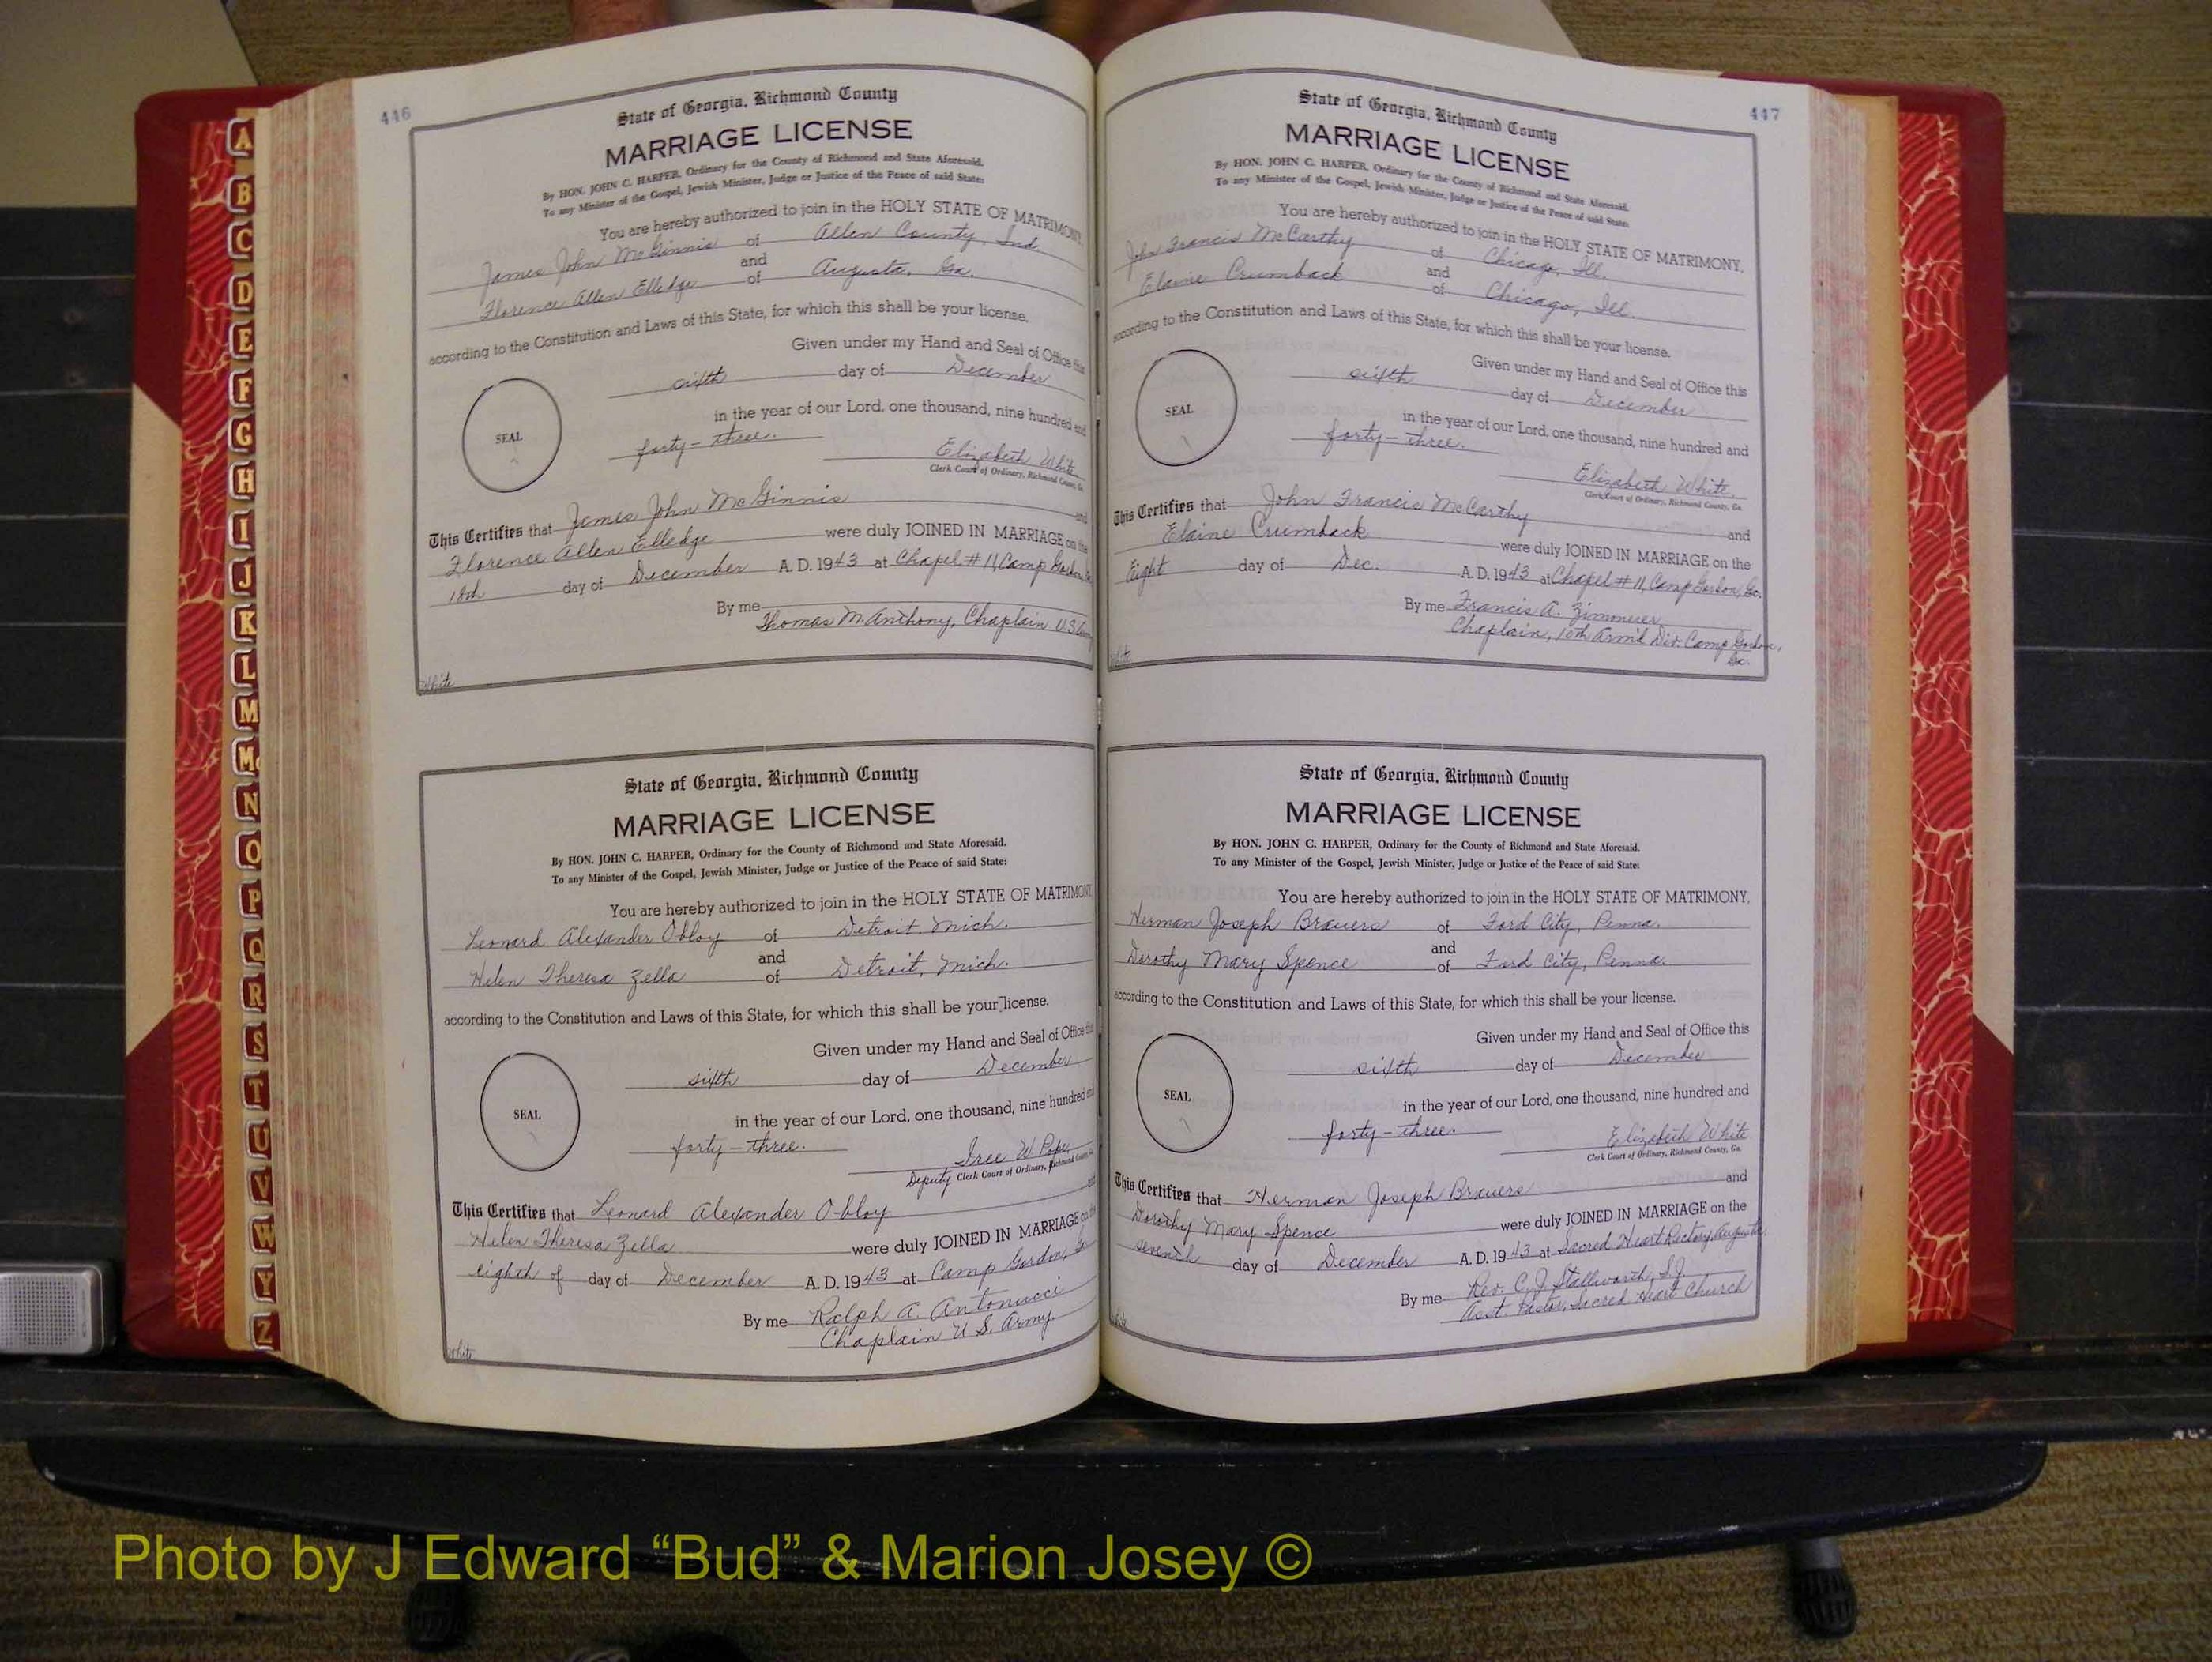 446
State of Georgia, Richmond County
MARRIAGE LICENSE
By HON. JOHN C. HARPER, Ordinary for the County of Richmond and State Aforesaid.
To any Minister of the Gospel, Jewish Minister, Judge or Justice of the Peace of said State:
You are hereby authorized to join in the HOLY STATE OF MATRIMONY,
James John McGinnis of Allen County, Ind
and
Florence Allen Elledge of Augusta, Ga.
according to the Constitution and Laws of this State, for which this shall be your license.
Given under my Hand and Seal of Office this
sixth day of December
in the year of our Lord, one thousand, nine hundred and
forty-three.
SEAL
Elizabeth White
Clerk Court of Ordinary, Richmond County, Ga.
This Certifies that James John McGinnis and
Florence Allen Elledge were duly JOINED IN MARRIAGE on the
18th day of December A. D. 1943 at Chapel #11, Camp Gordon,
By me
Thomas M. Anthony, Chaplain U.S. Army
White
State of Georgia, Richmond County
MARRIAGE LICENSE
By HON. JOHN C. HARPER, Ordinary for the County of Richmond and State Aforesaid.
To any Minister of the Gospel, Jewish Minister, Judge or Justice of the Peace of said State:
You are hereby authorized to join in the HOLY STATE OF MATRIMONY
Leonard Alexander Obloy of Detroit, Mich.
and
Helen Theresa Zella of Detroit, Mich.
according to the Constitution and Laws of this State, for which this shall be your license.
Given under my Hand and Seal of Office this
sixth day of December
in the year of our Lord, one thousand, nine hundred and
forty-three.
SEAL
Iree W. Pope
Deputy Clerk Court of Ordinary, Richmond County, Ga
This Certifies that Leonard Alexander Obloy and
Helen Theresa Zella were duly JOINED IN MARRIAGE on the
eighth of day of December A. D. 1943 at Camp Gordon, Ga
By me Ralph A. Antonucci
Chaplain U.S. Army
White
447
State of Georgia, Richmond County
MARRIAGE LICENSE
By HON. JOHN C. HARPER, Ordinary for the County of Richmond and State Aforesaid.
To any Minister of the Gospel, Jewish Minister, Judge or Justice of the Peace of said State:
You are hereby authorized to join in the HOLY STATE OF MATRIMONY,
John Francis McCarthy of Chicago, Ill.
and
Elaine Crumback of Chicago, Ill.
according to the Constitution and Laws of this State, for which this shall be your license.
Given under my Hand and Seal of Office this
sixth day of December
in the year of our Lord, one thousand, nine hundred and
forty-three.
SEAL
Elizabeth White
Clerk Court of Ordinary, Richmond County, Ga.
This Certifies that John Francis McCarthy and
Elaine Crumback were duly JOINED IN MARRIAGE on the
Eight day of Dec. A. D. 1943 at Chapel #11, Camp Gordon, Ga.
By me Francis A. Zimmerer
Chaplain, 10th Arm'd Div. Camp Gordon,
Ga.
White
State of Georgia, Richmond County
MARRIAGE LICENSE
By HON. JOHN C. HARPER, Ordinary for the County of Richmond and State Aforesaid.
To any Minister of the Gospel, Jewish Minister, Judge or Justice of the Peace of said State:
You are hereby authorized to join in the HOLY STATE OF MATRIMONY,
Herman Joseph Brauers of Ford City, Penna.
and
Dorothy Mary Spence of Ford City, Penna.
according to the Constitution and Laws of this State, for which this shall be your license.
Given under my Hand and Seal of Office this
sixth day of December
in the year of our Lord, one thousand, nine hundred and
forty-three.
SEAL
Elizabeth White
Clerk Court of Ordinary, Richmond County, Ga.
This Certifies that Herman Joseph Brauers and
Dorothy Mary Spence were duly JOINED IN MARRIAGE on the
seventh day of December A. D. 1943 at Sacred Heart Rectory, Augusta
By me Rev. C. J. Stallworth, S.J.
Asst. Pastor, Sacred Heart Church
White
A
B
C
D
E
F
G
H
I
J
K
L
M
Mc
N
O
P
Q
R
S
T
U
V
W
Y
Z
Photo by J Edward “Bud” & Marion Josey ©